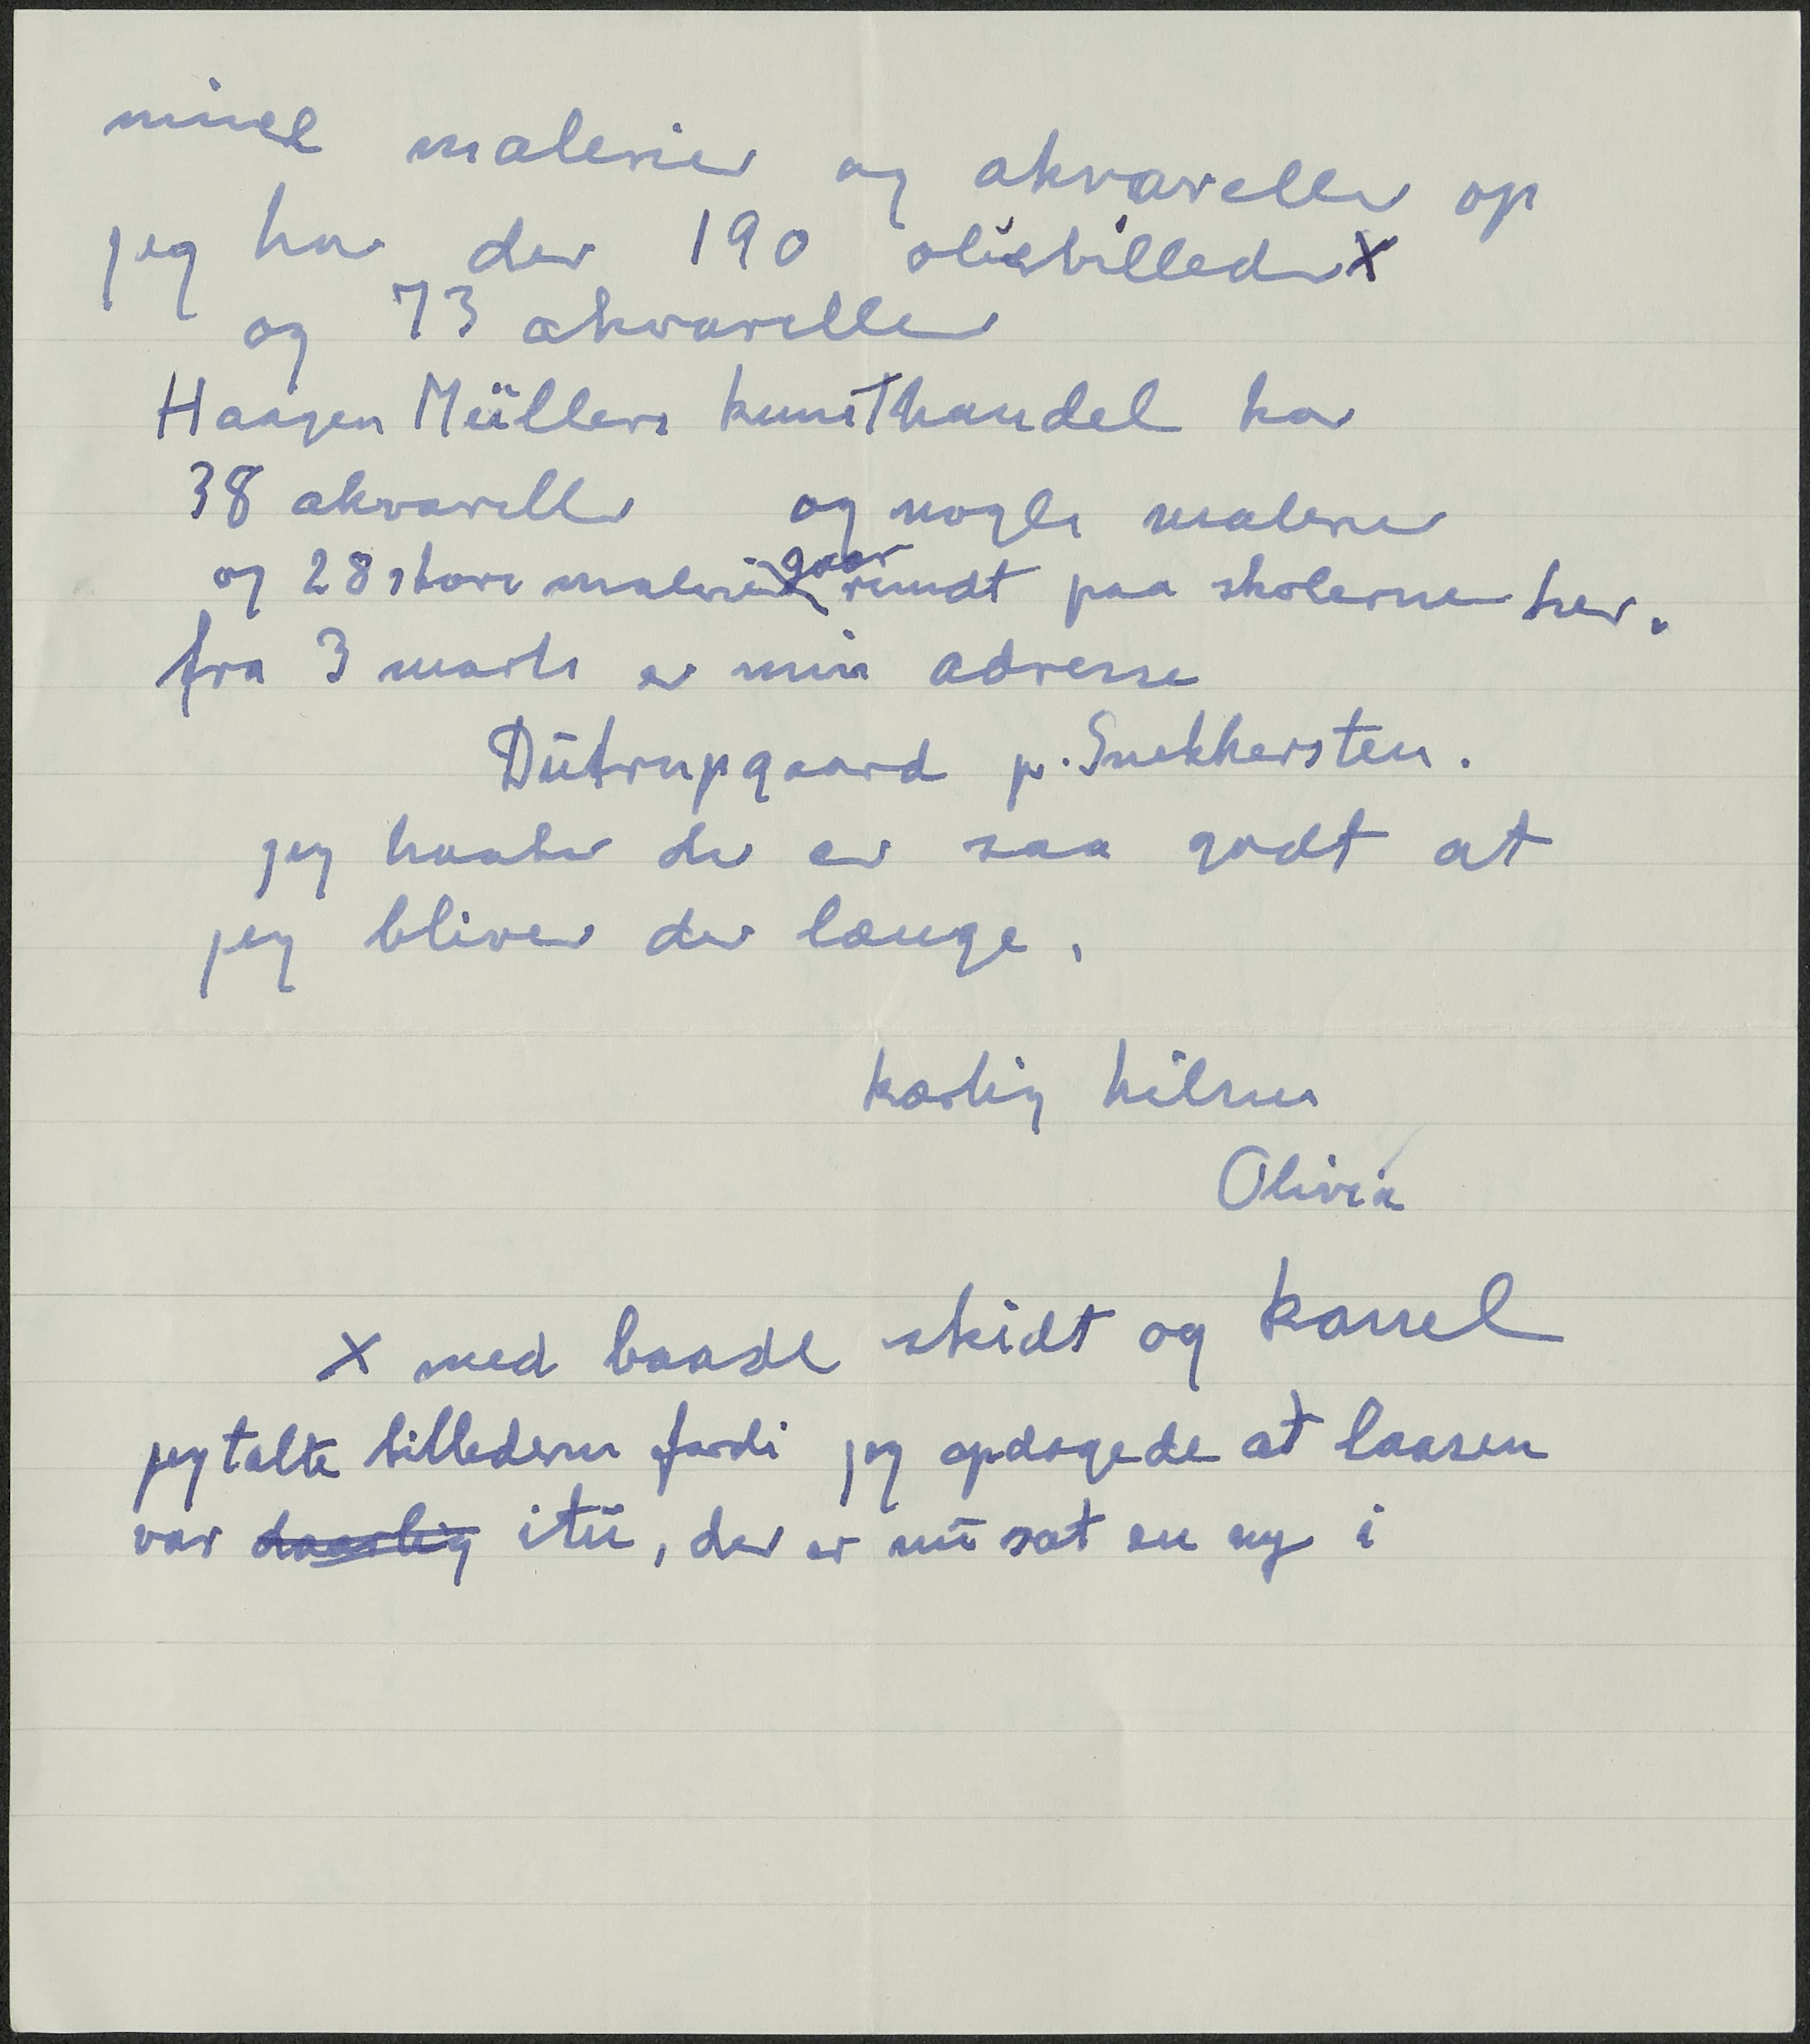 mine malerier og akvareller op
jeg har der 190 oliebilleder X
og 73 akvareller
Haagen Müllers kunsthandel har
38 akvareller og nogle malerier
og 28 store malerier gaar rundt paa skolerne her.
fra 3 marts er min adresse
Dūtrupgaard p. Snekkersten.
jeg haaber der er saa godt at
jeg bliver der længe.
kærlig hilsen
Olivia
X med baade skidt og kanel
jeg talte billederne fordi jeg opdagede at laasen
var daarlig itū, der er nū sat en ny i